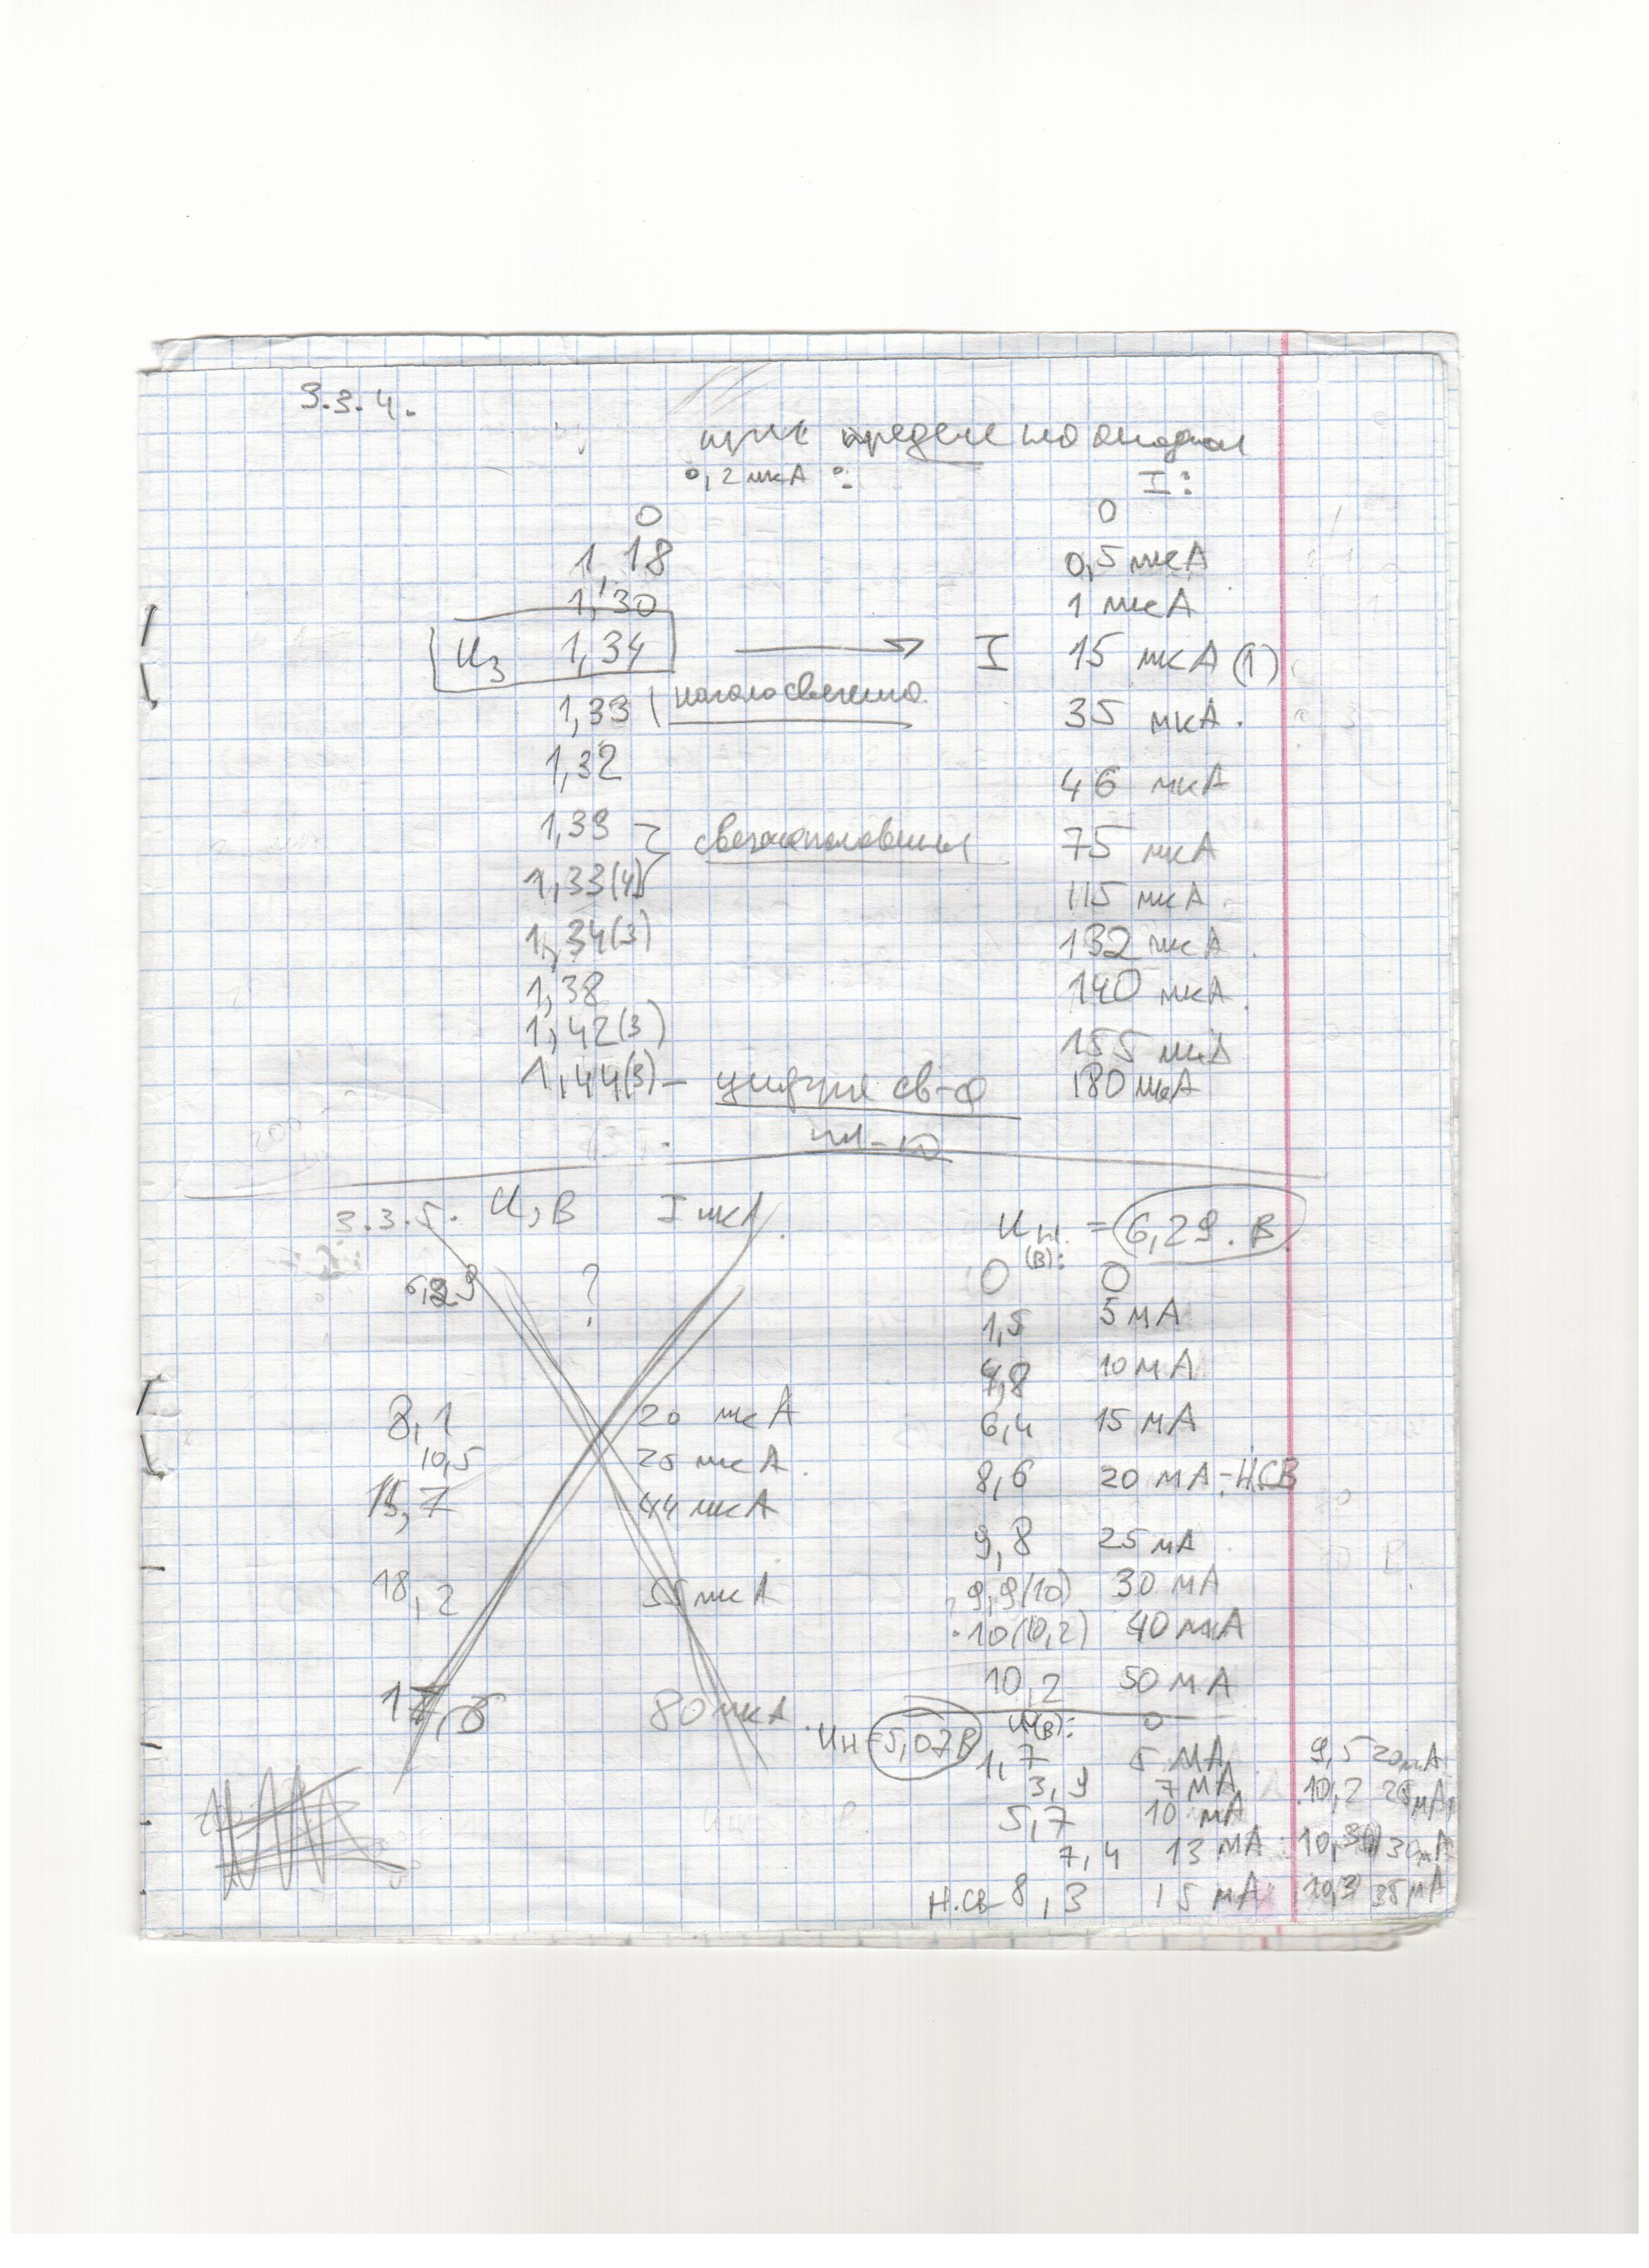 3.3.4.
при пределе по анодном
0,2 мкА : I:
0 0
1,18 0,5 мкА
1,30 1 мкА
Uз 1,34 I 15 мкА (1)
1,33 начало свечения 35 мкА.
1,32 46 мкА
1,33 75 мкА
1,33(4) 115 мкА
1,34(3) 132 мкА
1,38 140 мкА
1,42(3) 155 мкА
1,44(3) – св-е 180 мкА
3.3.5. U, В I мкА Uн. = 6,29. В
(В):
6,29 ? 0 0
1,5 5 мА
4,8 10 мА
8,1 20 мкА 6,4 15 мА
10,5 25 мкА
15,7 44 мкА 8,6 20 мА - Н.СВ
9,8 25 мА
18,2 55 мкА 9,9(10) 30 мА
10(10,2) 40 мА
10,2 50 мА
17,6 80 мкА Uн = 5,07В U(В): 0
1,7 5 мА 9,5 20мА
3,9 7 мА 10,2 25мА
5,7 10 мА
7,4 13 мА 30мА
Н.СВ- 8,3 15 мА 10,3 35 мА